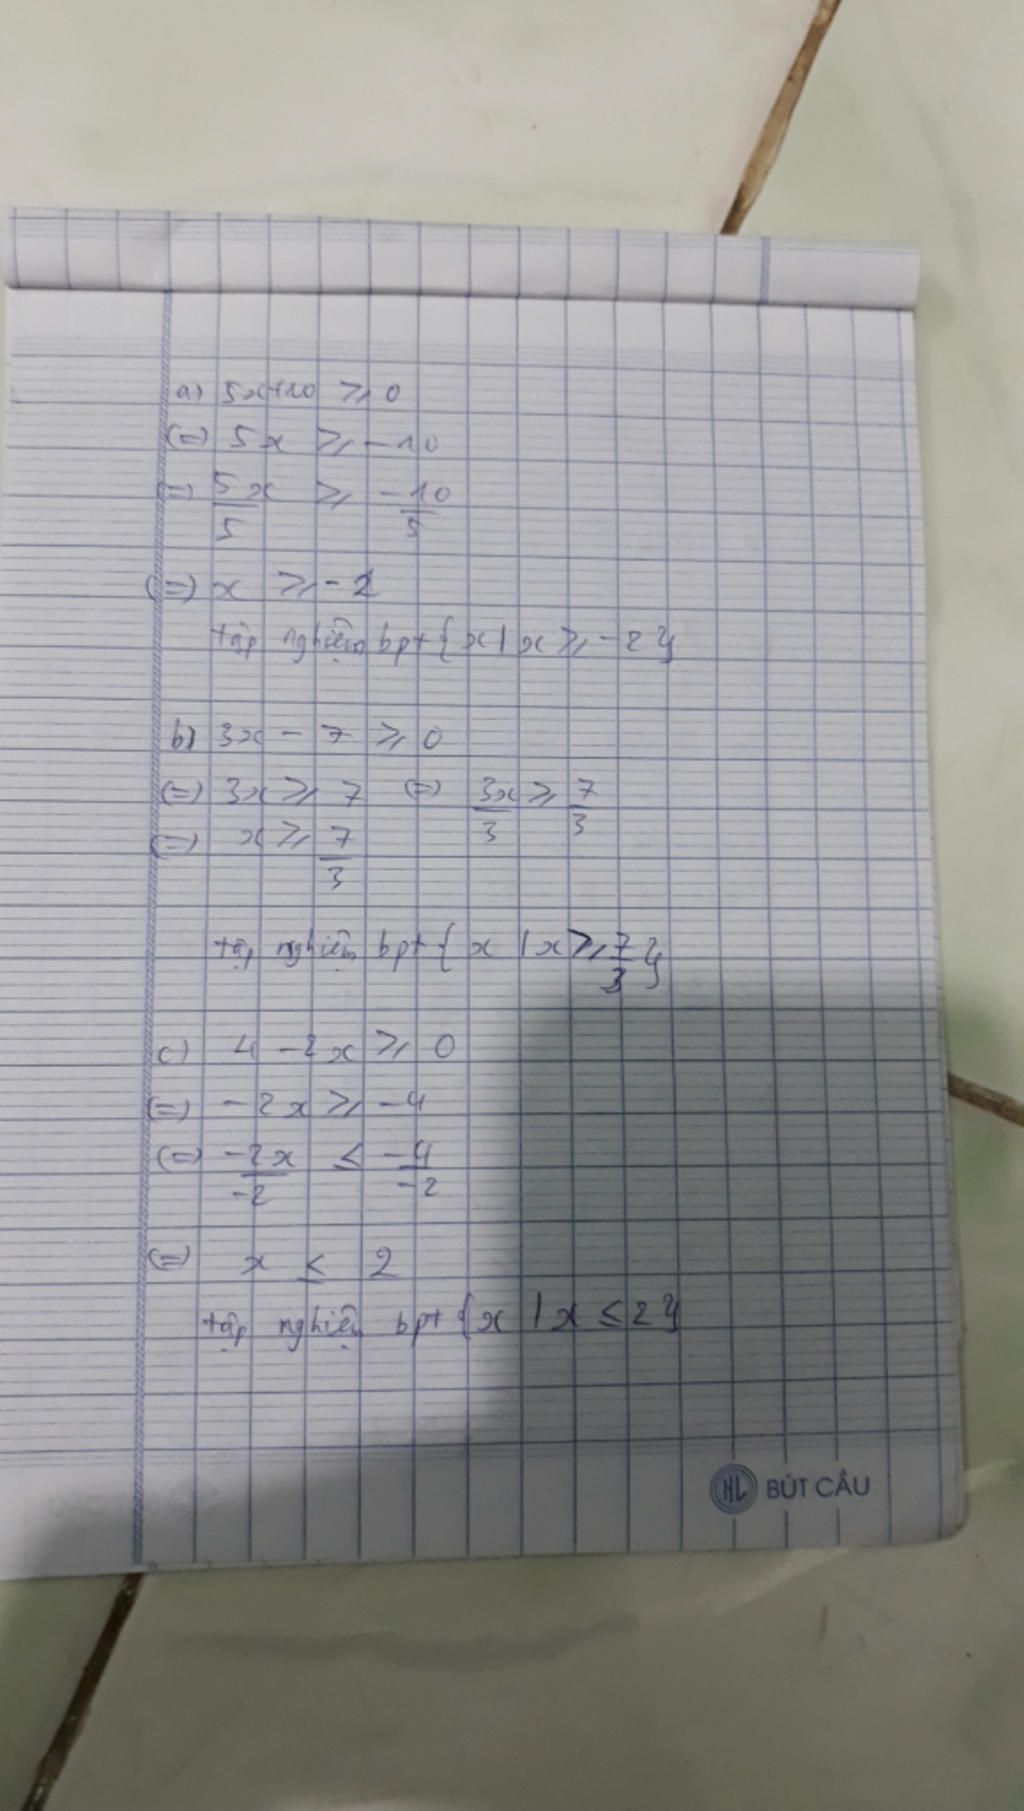 a) 5x+10 ⩾ 0
(=) 5x ⩾ -10
(=) 5x/5 ⩾ -10/5
(=) x ⩾ -2
tập nghiệm bpt {x | x ⩾ -2}
b) 3x - 7 ⩾ 0
(=) 3x ⩾ 7 (=) 3x/3 ⩾ 7/3
(=) x ⩾ 7/3
tập nghiệm bpt {x | x ⩾ 7/3}
c) 4 - 2x ⩾ 0
(=) -2x ⩾ -4
(=) -2x/-2 ≤ -4/-2
(=) x ≤ 2
tập nghiệm bpt {x | x ≤ 2}
HL BÚT CẦU